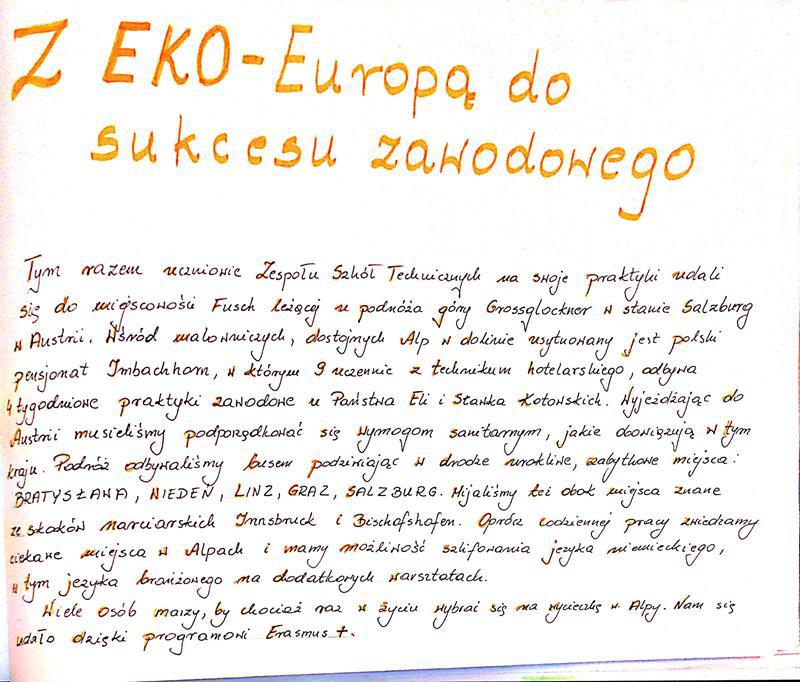 Z EKO-Europą do
sukcesu zawodowego
Tym razem uczniowie Zespołu Szkół Technicznych na swoje praktyki udali
się do miejscowości Fusch leżącej u podnóża góry Grossglockner w stanie Salzburg
w Austrii. Wśród malowniczych, dostojnych Alp w dolinie usytuowany jest polski
pensjonat Imbachhorn, w którym 9 uczennic z technikum hotelarskiego, odbywa
4 tygodniowe praktyki zawodowe u Państwa Eli i Sławka Kotowskich. Wyjeżdżając do
Austrii musieliśmy podporządkować się wymogom sanitarnym, jakie obowiązują w tym
kraju. Podróż odbywaliśmy busem podziwiając w drodze urokliwe, zabytkowe miejsca:
BRATYSŁAWA, WIEDEŃ, LINZ, GRAZ, SALZBURG. Mijaliśmy też obok miejsca znane
ze skoków narciarskich Innsbruck i Bischofshofen. Oprócz codziennej pracy zwiedzamy
ciekawe miejsca w Alpach i mamy możliwość szlifowania języka niemieckiego,
w tym języka branżowego na dodatkowych warsztatach.
Wiele osób marzy, by chociaż raz w życiu wybrać się na wycieczkę w Alpy. Nam się
udało dzięki programowi Erasmus+.